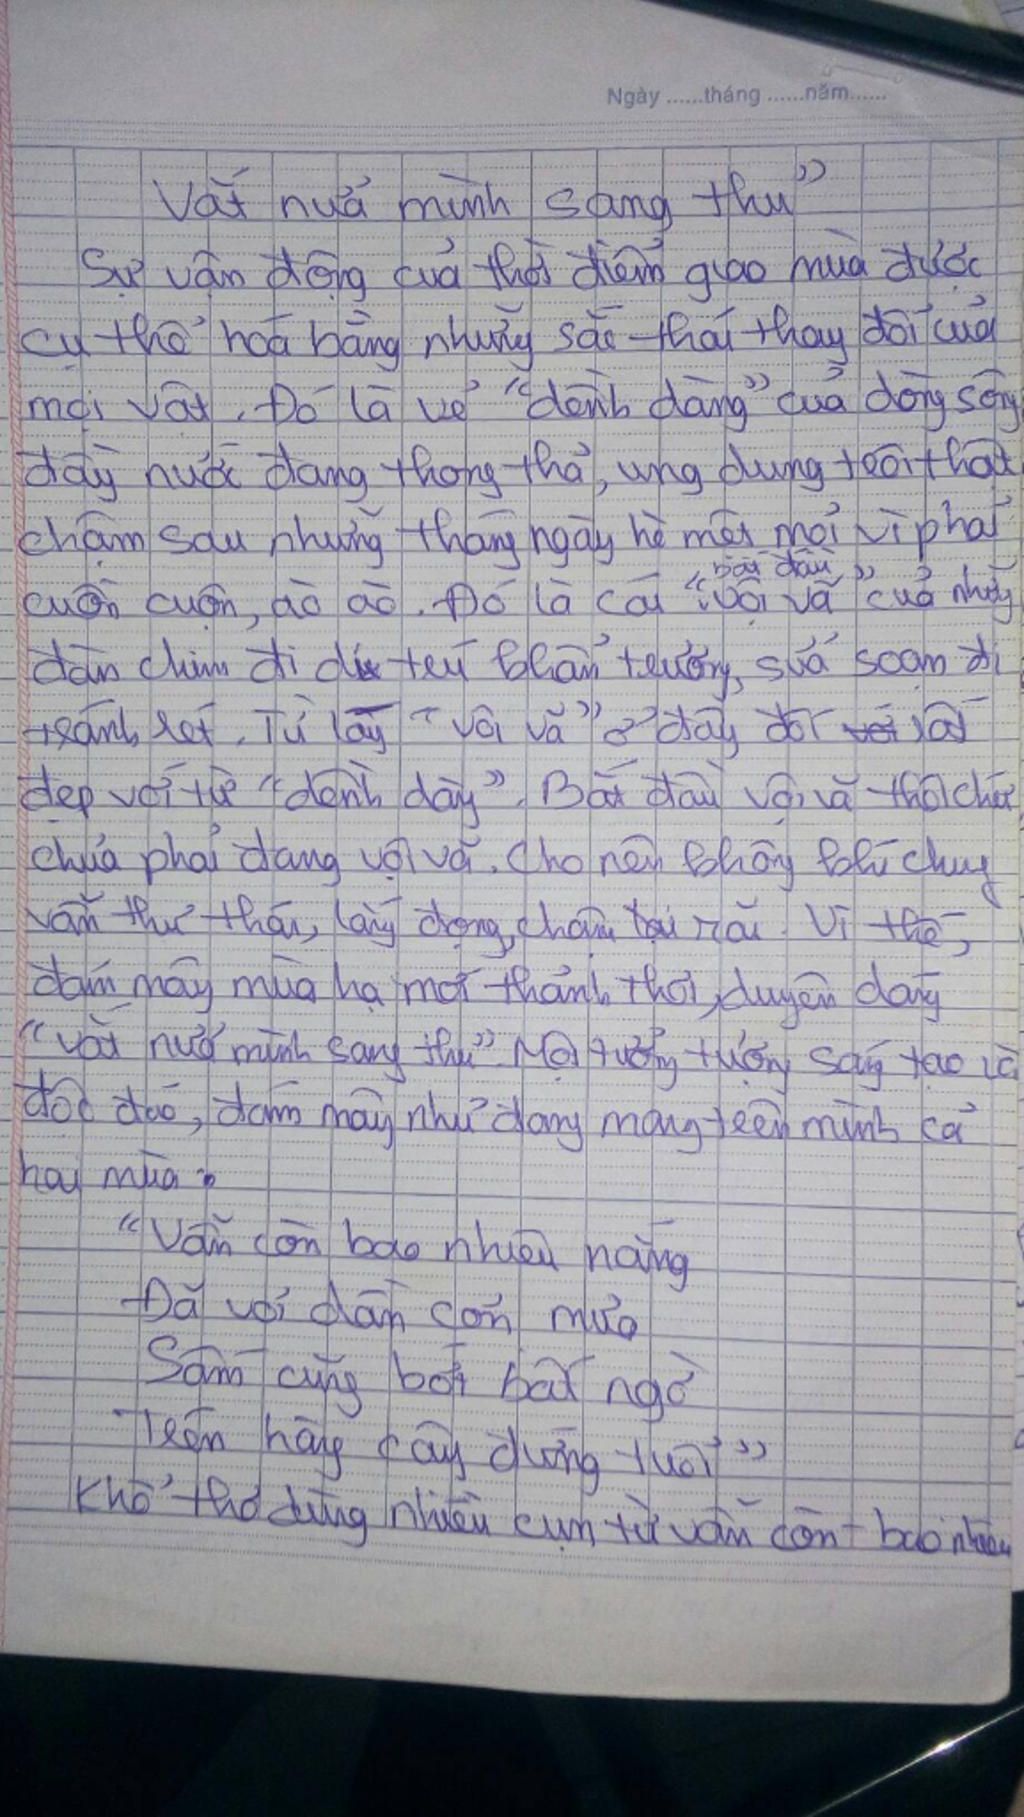 Ngày ......tháng ......năm......
Vắt nửa mình sang thu”
Sự vận động của thời điểm giao mùa được
cụ thể hoá bằng những sắc thái thay đổi của
mọi vật. Đó là vẻ “dềnh dàng” của dòng sông
đầy nước đang thong thả, ung dung trôi thật
chậm sau những tháng ngày hè mệt mỏi vì phải
cuồn cuộn, ào ào. Đó là cái “bắt đầu vội vã” của những
đàn chim di trú khẩn trương, sửa soạn đi
tránh rét. Từ láy “vội vã” ở đây đối rất
đẹp với từ “dềnh dàng”. Bắt đầu vội vã thôi chứ
chưa phải đang vội vã. Cho nên không khí chung
vẫn thư thái, lắng đọng, chậm rãi. Vì thế,
đám mây mùa hạ mới thảnh thơi, duyên dáng
“vắt nửa mình sang thu”. Một tưởng tượng sáng tạo và
độc đáo, đám mây như đang mang trên mình cả
hai mùa:
“Vẫn còn bao nhiêu nắng
Đã vơi dần cơn mưa
Sấm cũng bớt bất ngờ
Trên hàng cây đứng tuổi”
Khổ thơ dùng nhiều cụm từ vẫn còn - bao nhiêu